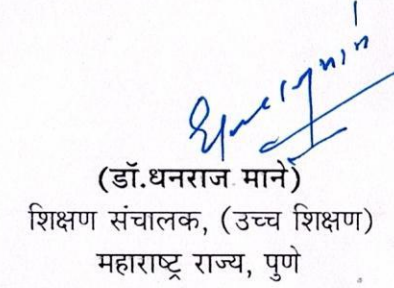 (डॉ.धनराज माने)
शिक्षण संचालक, (उच्च शिक्षण)
महाराष्ट्र राज्य, पुणे